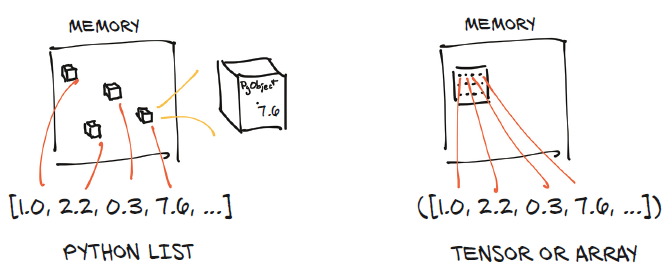 MEMORY
PyObject
7.6
[1.0, 2.2, 0.3, 7.6, ...]
PYTHON LIST
MEMORY
([1.0, 2.2, 0.3, 7.6, ...])
TENSOR OR ARRAY